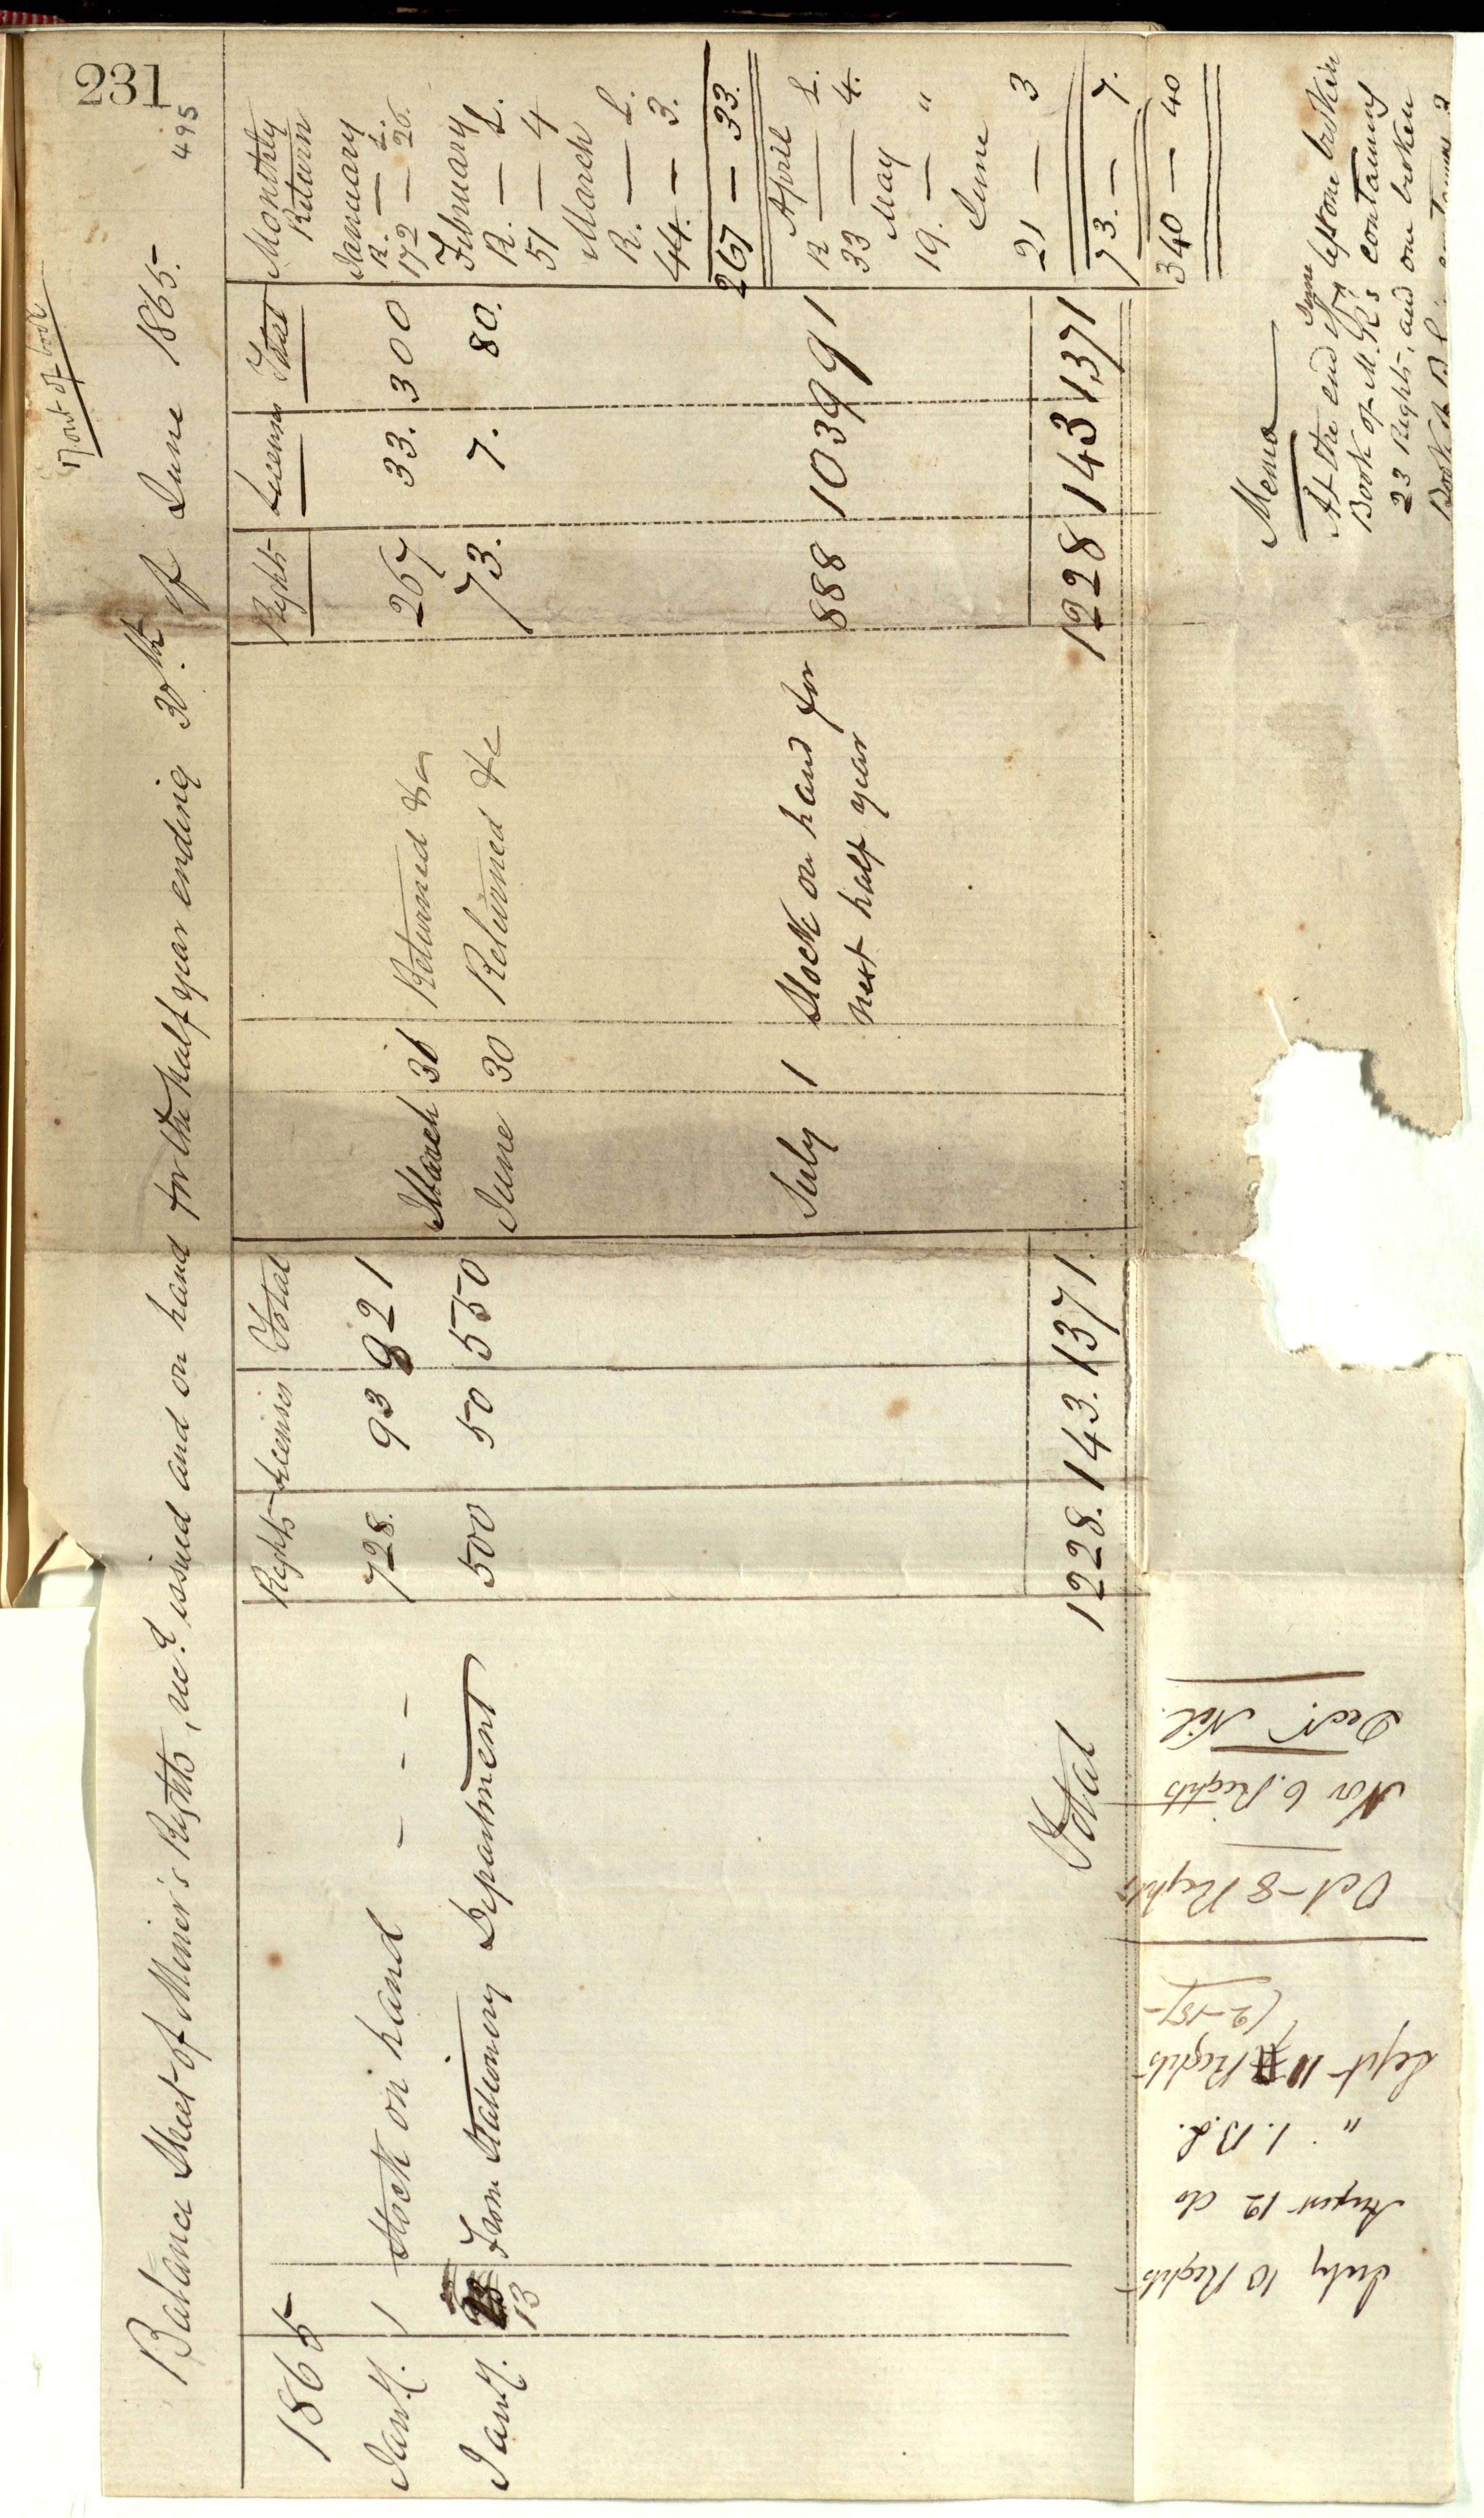 231
495
Balance Sheet of Miner's Rights, &c? issued and on hand for the half year ending 30th. of June 1865.
1865 Rights Licenses Total Rights Licenses Total Monthly Return
Jany. 1 Stock on hand - - - 728. 93 821 March 31 Returned &c 267 33. 300
Jany. 13 From Stationery Department 500 50 550 June 30 Returned &c 73. 7. 80.
July 1 Stock on hand for next half year 888 103 991
Total 1228. 143. 1371. 1228 143 1371
January
R. — L.
172 — 26.
February
R. — L.
51 — 4
March
R. — L.
44. — 3.
267 — 33.
April
R — L.
33 — 4.
May
19. — "
June
21 — 3
73. — 7.
340 — 40
Memo
At the end of June left one broken
Book of M. R's containing
23 Rights, and one broken
Book of B L
July 10 Rights
August 12 do
" 1. B.L.
Sept 11 Rights
(2-15/-
Oct - 8 Rights
Nov 6. Rights
Decr. Nil.